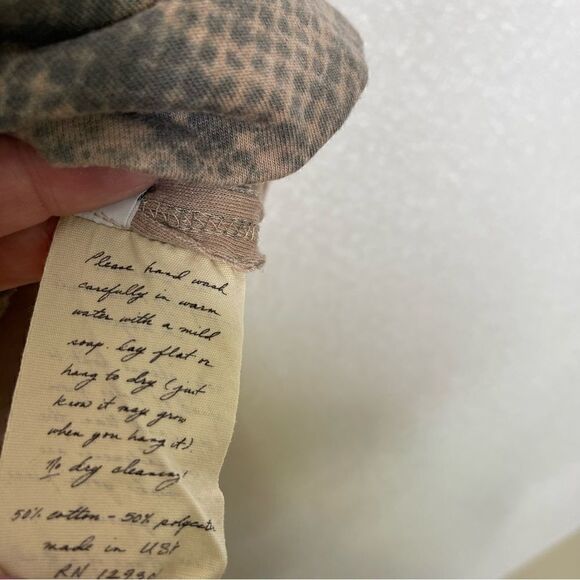 Please hand wash
carefully in warm
water with a mild
soap. Lay flat or
hang to dry (just
know it may grow
when you hang it)
No dry cleaning!
50% cotton - 50% polyester
made in USA
RN 1293